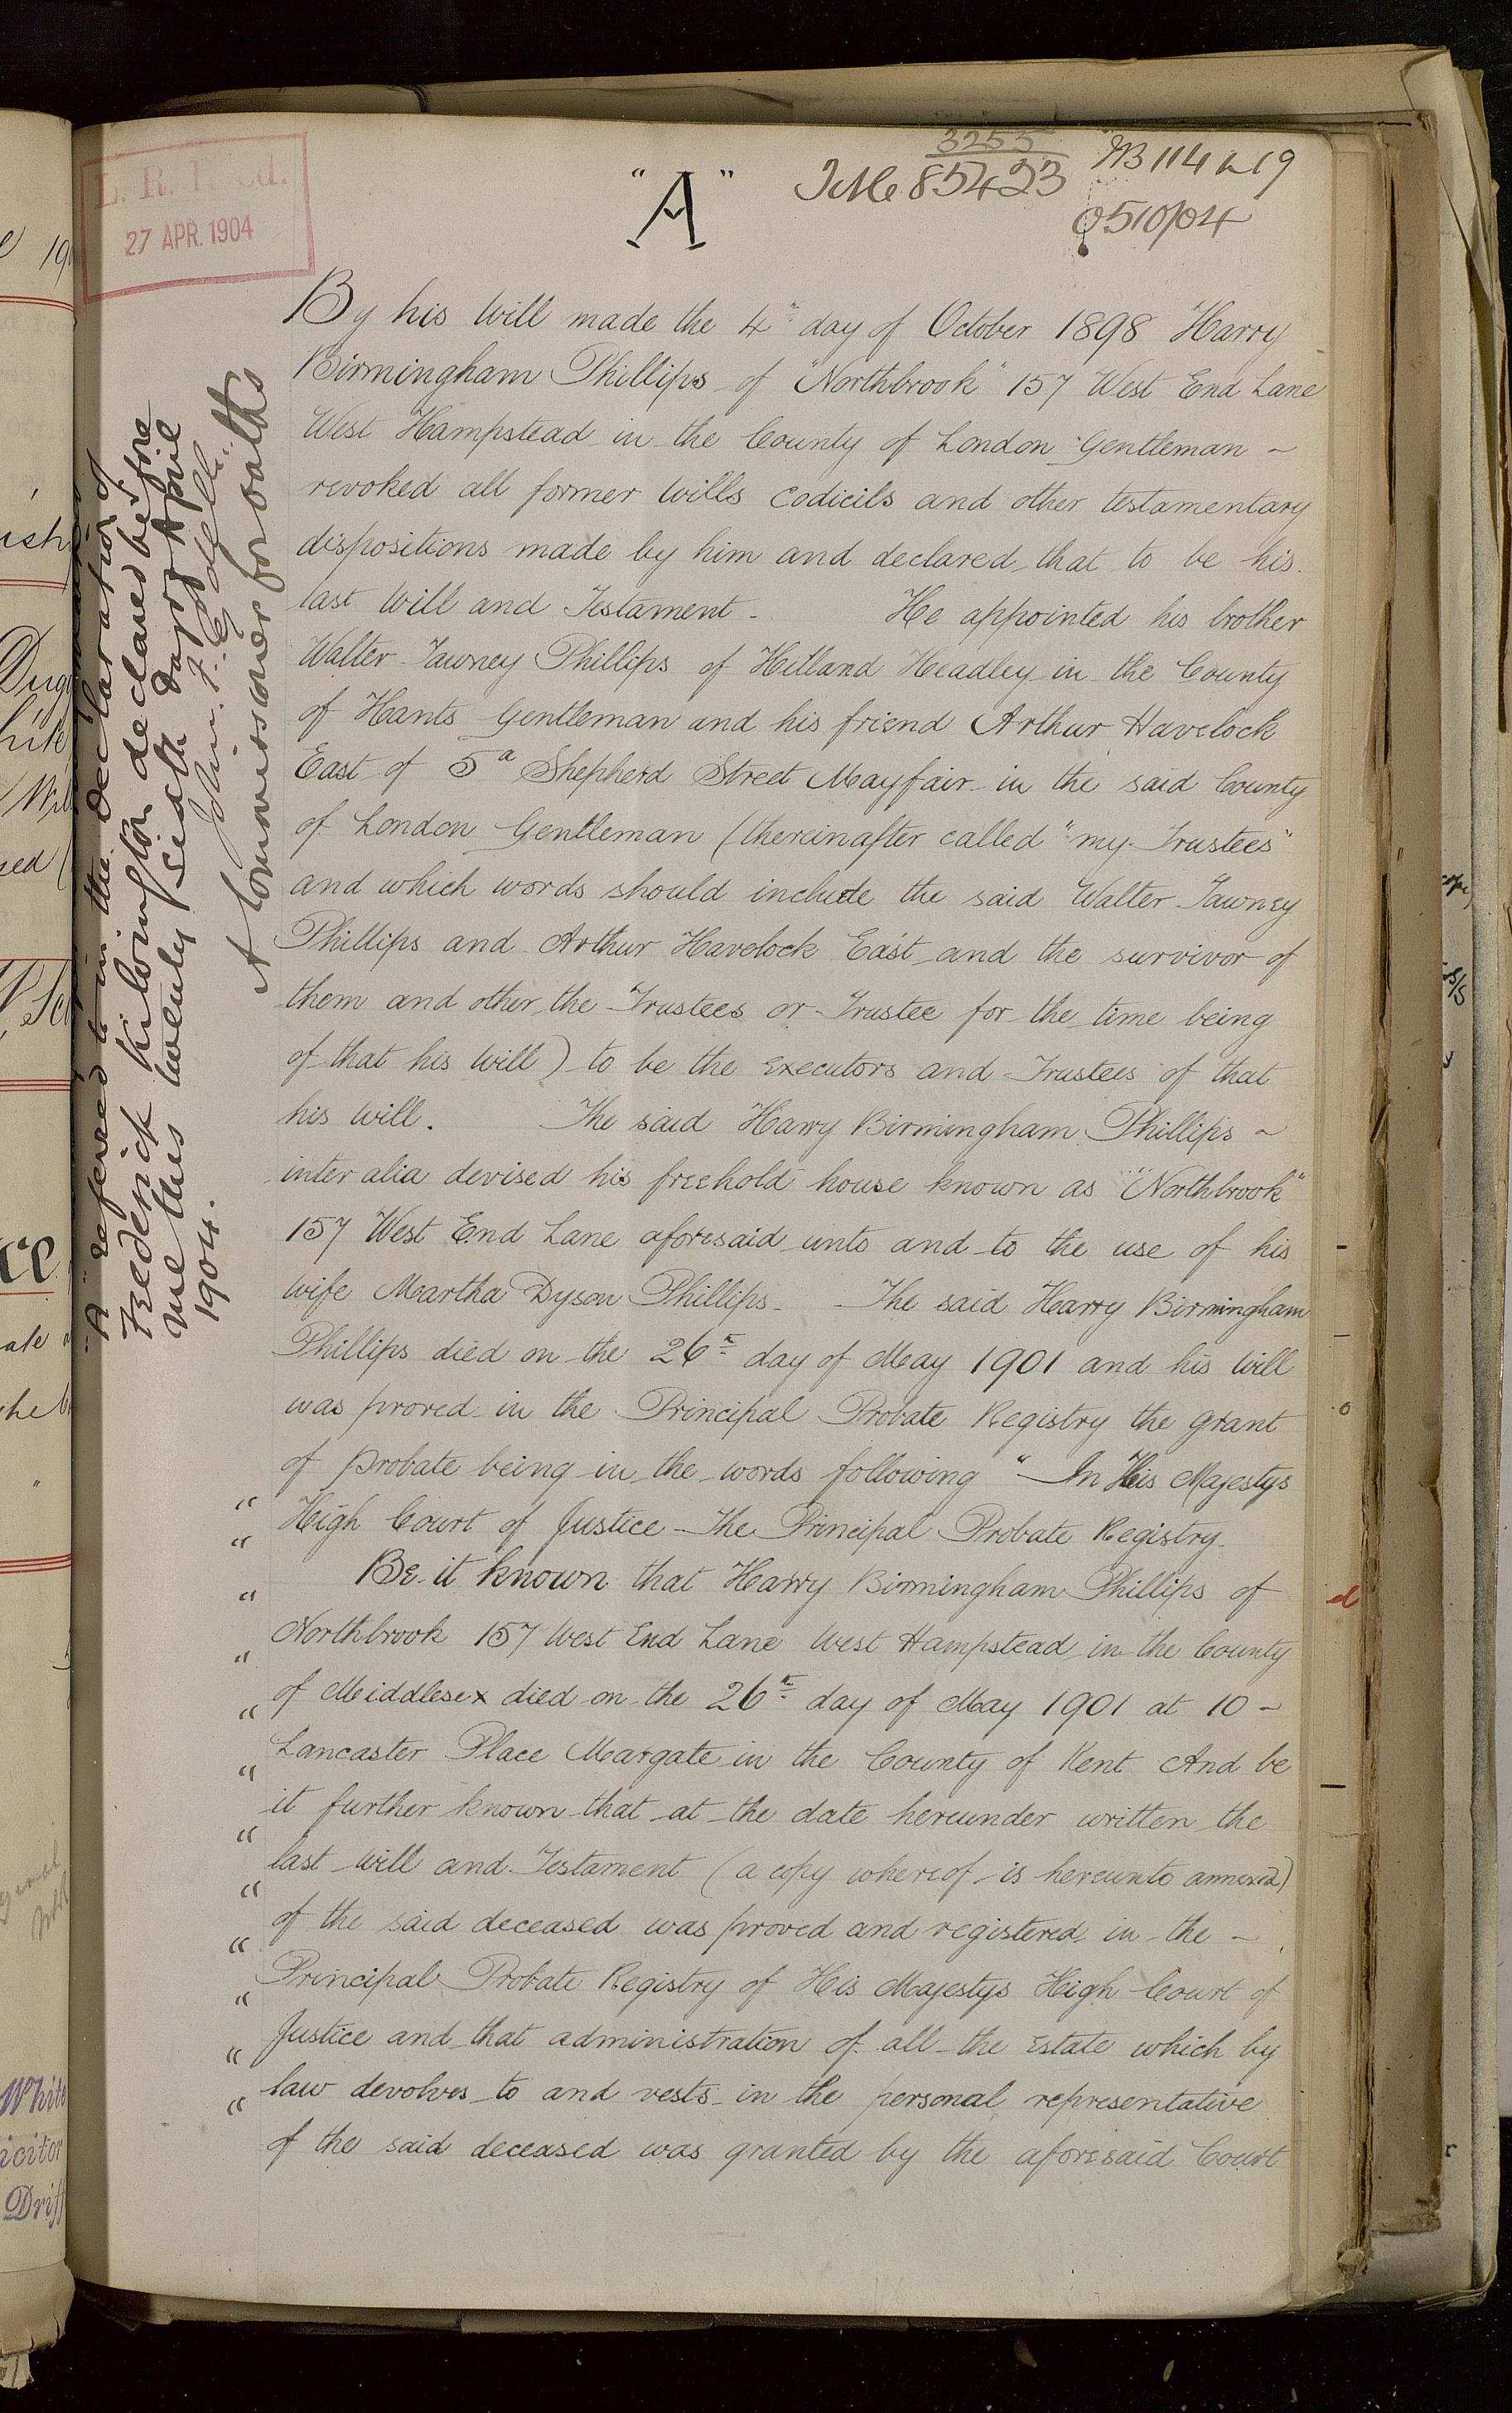 L. R. Fcd.
27 APR. 1904
"A"
3255
Title 85423
MB 114 L 19
0510/04
"A" referred to in the declaration of
Frederick Kilvington declared before
me this twenty sixth day of April
1904.
John
A Commissioner for Oaths
By his Will made the 4th day of October 1898 Harry
Birmingham Phillips of "Northbrook" 157 West End Lane
West Hampstead in the County of London Gentleman ~
revoked all former Wills Codicils and other testamentary
dispositions made by him and declared that to be his
last Will and Testament. He appointed his brother
Walter Tawney Phillips of Hilland Headley in the County
of Hants Gentleman and his friend Arthur Havelock
East of 5a Shepherd Street Mayfair in the said County
of London Gentleman (thereinafter called "my Trustees"
and which words should include the said Walter Tawney
Phillips and Arthur Havelock East and the survivor of
them and other the Trustees or Trustee for the time being
of that his Will) to be the Executors and Trustees of that
his Will. The said Harry Birmingham Phillips ~
inter alia devised his freehold house known as "Northbrook"
157 West End Lane aforesaid unto and to the use of his
wife Martha Dyson Phillips. The said Harry Birmingham
Phillips died on the 26th day of May 1901 and his Will
was proved in the Principal Probate Registry the grant
of Probate being in the words following "In His Majestys
" High Court of Justice The Principal Probate Registry.
" Be it known that Harry Birmingham Phillips of
" Northbrook 157 West End Lane West Hampstead in the County
" of Middlesex died on the 26th day of May 1901 at 10 ~
" Lancaster Place Margate in the County of Kent And be
" it further known that at the date hereunder written the
" last Will and Testament (a copy whereof is hereunto annexed)
" of the said deceased was proved and registered in the ~
" Principal Probate Registry of His Majestys High Court of
" Justice and that administration of all the Estate which by
" law devolves to and vests in the personal representative
" of the said deceased was granted by the aforesaid Court